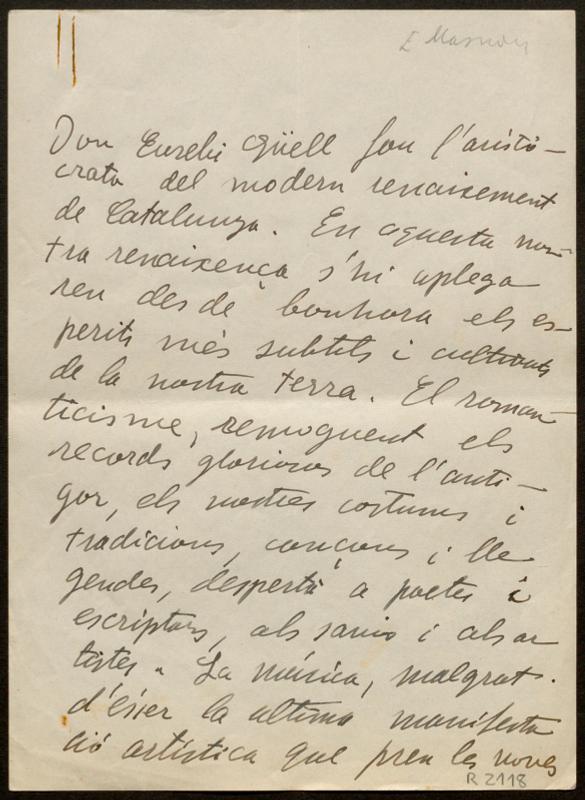 E Masriera
Don Eusebi Güell fou l'aristò-
crata del modern renaixement
de Catalunya. En aquesta nos-
tra renaixença s'hi aplega
ren des de bonhora els es-
perits més subtils i cultivats
de la nostra terra. El roman-
ticisme, remoguent els
records gloriosos de l'anti-
gor, els nostres costums i
tradicions, cançons i lle
gendes, despertà a poetes i
escriptors, als savis i als ar
tistes. La música, malgrat
d'ésser la ultima manifesta
ció artística que pren les noves
R 2118